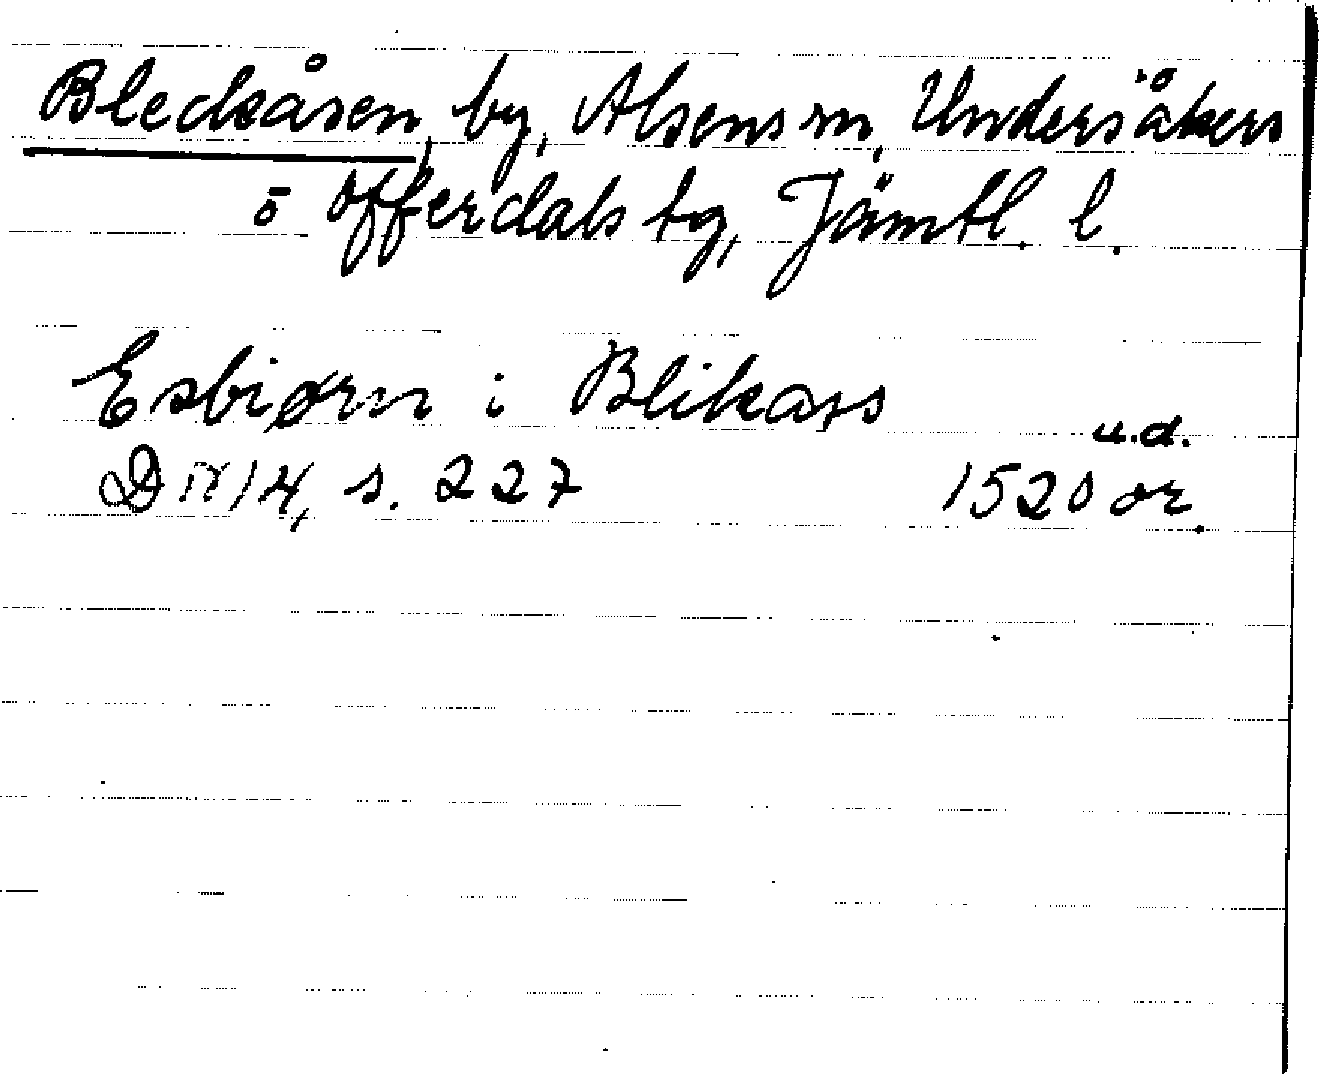 Bleckåsen, by, Alsens sn, Undersåkers
o Offerdals tg, Jämtl. l.
Esbiørn i Blikaas
u.d.
DN 14, s. 227 1520 or.